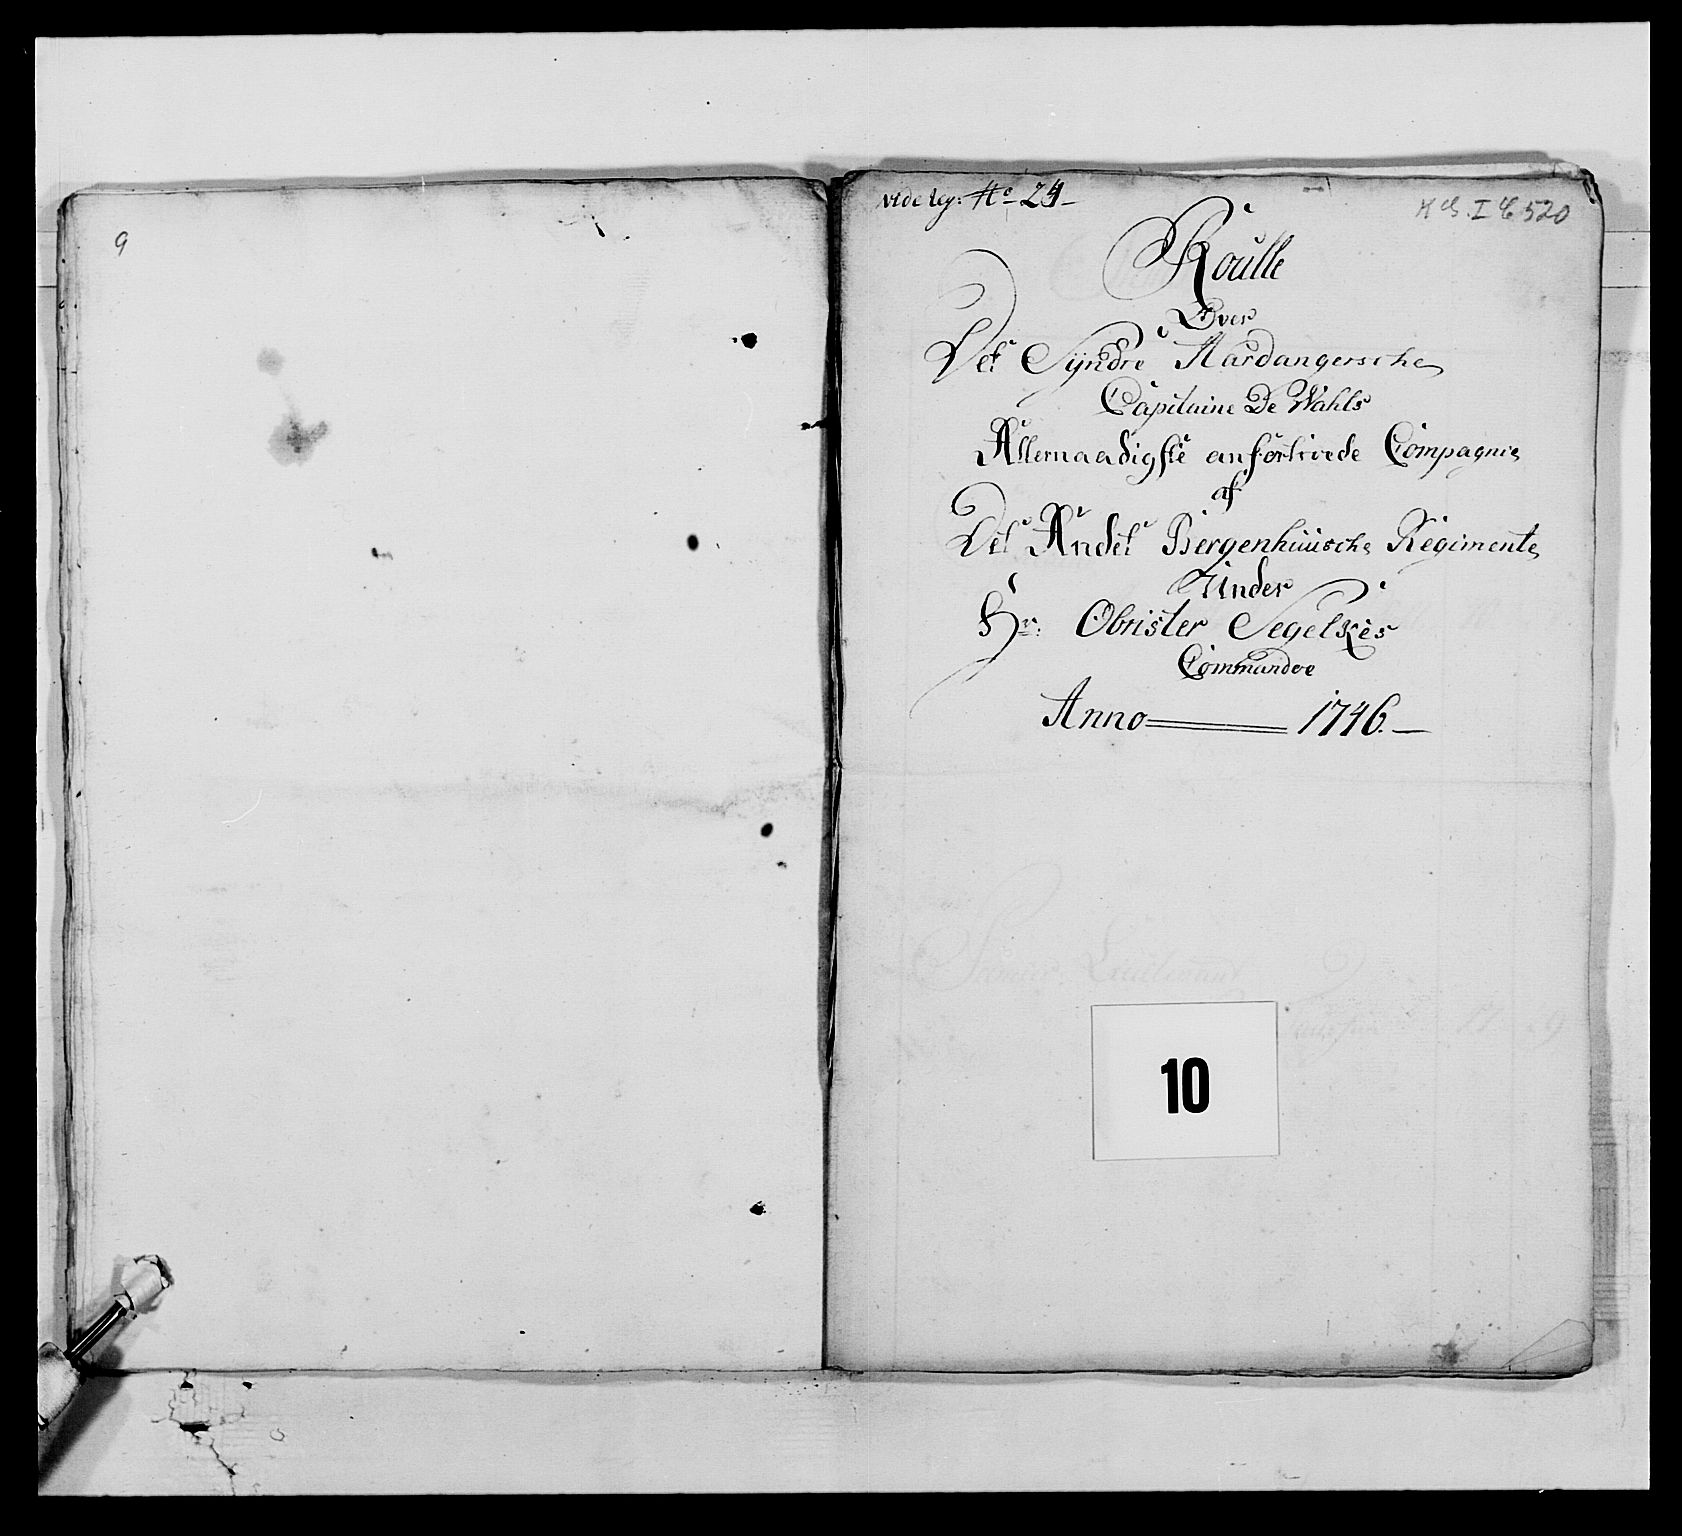 9
vide reg: No 24
Roulle
Over
Det Syndre Hardangersche
Capitaine De Wahls
Allernaadigste anfortroede Compagnie
af
Det Andet Bergenhuusche Regimente
Under
Hr: Obrister Segelkes
Commandoe
Anno 1746.
10